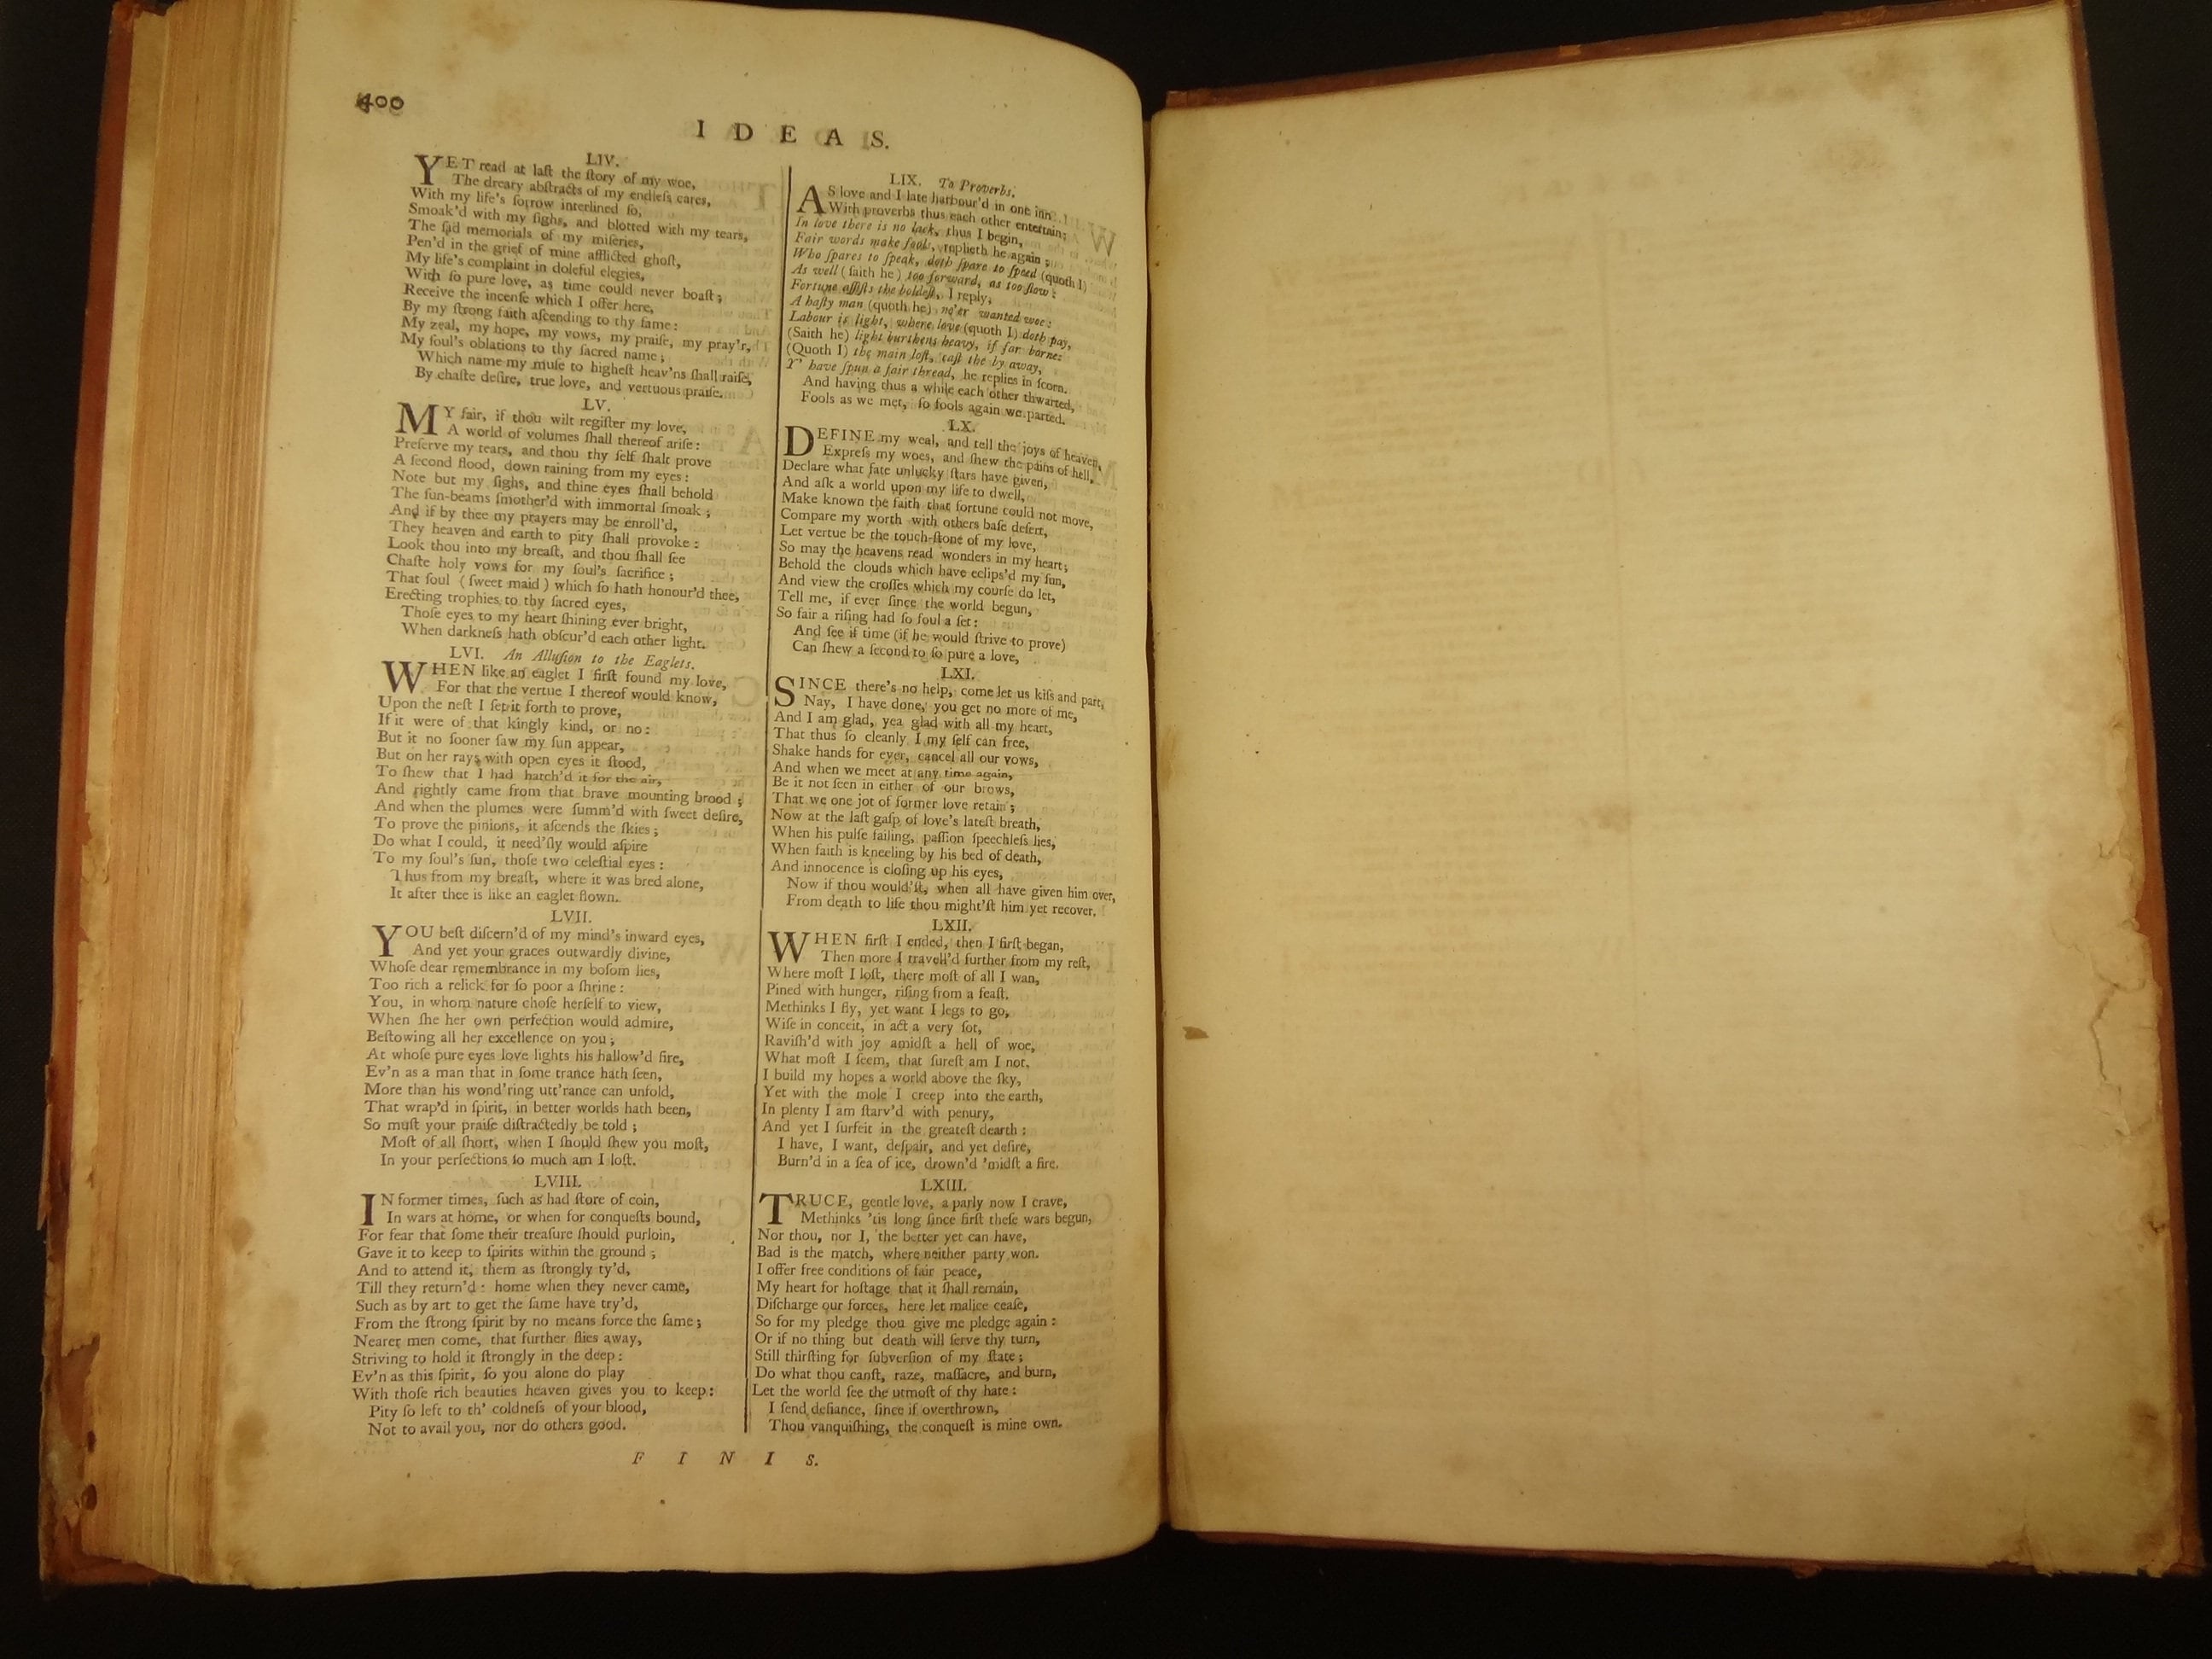 400
IDEAS.
LIV.
YET read at laſt the ſtory of my woe,
The dreary abſtracts of my endleſs cares,
With my life's ſorrow interlined ſo,
Smoak'd with my ſighs, and blotted with my tears,
The ſad memorials of my miſeries,
Pen'd in the grief of mine afflicted ghoſt,
My life's complaint in doleful elegies,
With ſo pure love, as time could never boaſt;
Receive the incenſe which I offer here,
By my ſtrong faith aſcending to thy fame:
My zeal, my hope, my vows, my praiſe, my pray'r,
My ſoul's oblations to thy ſacred name;
Which name my muſe to higheſt heav'ns ſhall raiſe,
By chaſte deſire, true love, and vertuous praiſe.
LV.
MY fair, if thou wilt regiſter my love,
A world of volumes ſhall thereof ariſe:
Preſerve my tears, and thou thy ſelf ſhalt prove
A ſecond flood, down raining from my eyes:
Note but my ſighs, and thine eyes ſhall behold
The ſun-beams ſmother'd with immortal ſmoak;
And if by thee my prayers may be enroll'd,
They heaven and earth to pity ſhall provoke:
Look thou into my breaſt, and thou ſhall ſee
Chaſte holy vows for my ſoul's ſacrifice;
That ſoul (ſweet maid) which ſo hath honour'd thee,
Erecting trophies to thy ſacred eyes,
Thoſe eyes to my heart ſhining ever bright,
When darkneſs hath obſcur'd each other light.
LVI. An Alluſion to the Eaglets.
WHEN like an eaglet I firſt found my love,
For that the vertue I thereof would know,
Upon the neſt I ſet it forth to prove,
If it were of that kingly kind, or no:
But it no ſooner ſaw my ſun appear,
But on her rays with open eyes it ſtood,
To ſhew that I had hatch'd it for the air,
And rightly came from that brave mounting brood;
And when the plumes were ſumm'd with ſweet deſire,
To prove the pinions, it aſcends the ſkies;
Do what I could, it need'ſly would aſpire
To my ſoul's ſun, thoſe two celeſtial eyes:
Thus from my breaſt, where it was bred alone,
It after thee is like an eaglet flown.
LVII.
YOU beſt diſcern'd of my mind's inward eyes,
And yet your graces outwardly divine,
Whoſe dear remembrance in my boſom lies,
Too rich a relick for ſo poor a ſhrine:
You, in whom nature choſe herſelf to view,
When ſhe her own perfection would admire,
Beſtowing all her excellence on you;
At whoſe pure eyes love lights his hallow'd fire,
Ev'n as a man that in ſome trance hath ſeen,
More than his wond'ring utt'rance can unfold,
That wrap'd in ſpirit, in better worlds hath been,
So muſt your praiſe diſtractedly be told;
Moſt of all ſhort, when I ſhould ſhew you moſt,
In your perfections ſo much am I loſt.
LVIII.
IN former times, ſuch as had ſtore of coin,
In wars at home, or when for conqueſts bound,
For fear that ſome their treaſure ſhould purloin,
Gave it to keep to ſpirits within the ground;
And to attend it, them as ſtrongly ty'd,
Till they return'd: home when they never came,
Such as by art to get the ſame have try'd,
From the ſtrong ſpirit by no means force the ſame;
Nearer men come, that further flies away,
Striving to hold it ſtrongly in the deep:
Ev'n as this ſpirit, ſo you alone do play
With thoſe rich beauties heaven gives you to keep:
Pity ſo left to th' coldneſs of your blood,
Not to avail you, nor do others good.
LIX. To Proverbs.
AS love and I late harbour'd in one inn,
With proverbs thus each other entertain;
In love there is no lack, thus I begin,
Fair words make fools, replieth he again;
Who ſpares to ſpeak, doth ſpare to ſpeed (quoth I)
As well (ſaith he) too forward, as too ſlow:
Fortune aſſiſts the boldeſt, I reply;
A haſty man (quoth he) ne'er wanted woe:
Labour is light, where love (quoth I) doth pay,
(Saith he) light burthens heavy, if far borne:
(Quoth I) the main loſt, caſt the by away,
Y' have ſpun a fair thread, he replies in ſcorn.
And having thus a while each other thwarted,
Fools as we met, ſo fools again we parted.
LX.
DEFINE my weal, and tell the joys of heaven,
Expreſs my woes, and ſhew the pains of hell,
Declare what fate unlucky ſtars have given,
And aſk a world upon my life to dwell,
Make known the faith that fortune could not move,
Compare my worth with others baſe deſert,
Let vertue be the touch-ſtone of my love,
So may the heavens read wonders in my heart;
Behold the clouds which have eclips'd my ſun,
And view the croſſes which my courſe do let,
Tell me, if ever ſince the world begun,
So fair a riſing had ſo foul a ſet:
And ſee if time (if he would ſtrive to prove)
Can ſhew a ſecond to ſo pure a love,
LXI.
SINCE there's no help, come let us kiſs and part,
Nay, I have done, you get no more of me,
And I am glad, yea glad with all my heart,
That thus ſo cleanly I my ſelf can free,
Shake hands for ever, cancel all our vows,
And when we meet at any time again,
Be it not ſeen in either of our brows,
That we one jot of former love retain;
Now at the laſt gaſp of love's lateſt breath,
When his pulſe failing, paſſion ſpeechleſs lies,
When faith is kneeling by his bed of death,
And innocence is cloſing up his eyes,
Now if thou would'ſt, when all have given him over,
From death to life thou might'ſt him yet recover.
LXII.
WHEN firſt I ended, then I firſt began,
Then more I travell'd further from my reſt,
Where moſt I loſt, there moſt of all I wan,
Pined with hunger, riſing from a feaſt.
Methinks I fly, yet want I legs to go,
Wiſe in conceit, in act a very ſot,
Raviſh'd with joy amidſt a hell of woe,
What moſt I ſeem, that ſureſt am I not,
I build my hopes a world above the ſky,
Yet with the mole I creep into the earth,
In plenty I am ſtarv'd with penury,
And yet I ſurfeit in the greateſt dearth:
I have, I want, deſpair, and yet deſire,
Burn'd in a ſea of ice, drown'd 'midſt a fire.
LXIII.
TRUCE, gentle love, a parly now I crave,
Methinks 'tis long ſince firſt theſe wars begun,
Nor thou, nor I, the better yet can have,
Bad is the match, where neither party won.
I offer free conditions of fair peace,
My heart for hoſtage that it ſhall remain,
Diſcharge our forces, here let malice ceaſe,
So for my pledge thou give me pledge again:
Or if no thing but death will ſerve thy turn,
Still thirſting for ſubverſion of my ſtate;
Do what thou canſt, raze, maſſacre, and burn,
Let the world ſee the utmoſt of thy hate:
I ſend defiance, ſince if overthrown,
Thou vanquiſhing, the conqueſt is mine own.
FINIS.